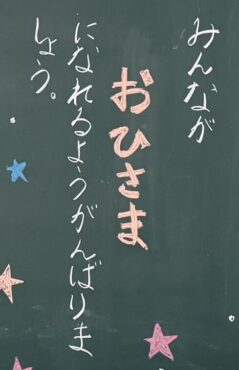 みんなが
おひさま
になれるようがんばりま
しょう。